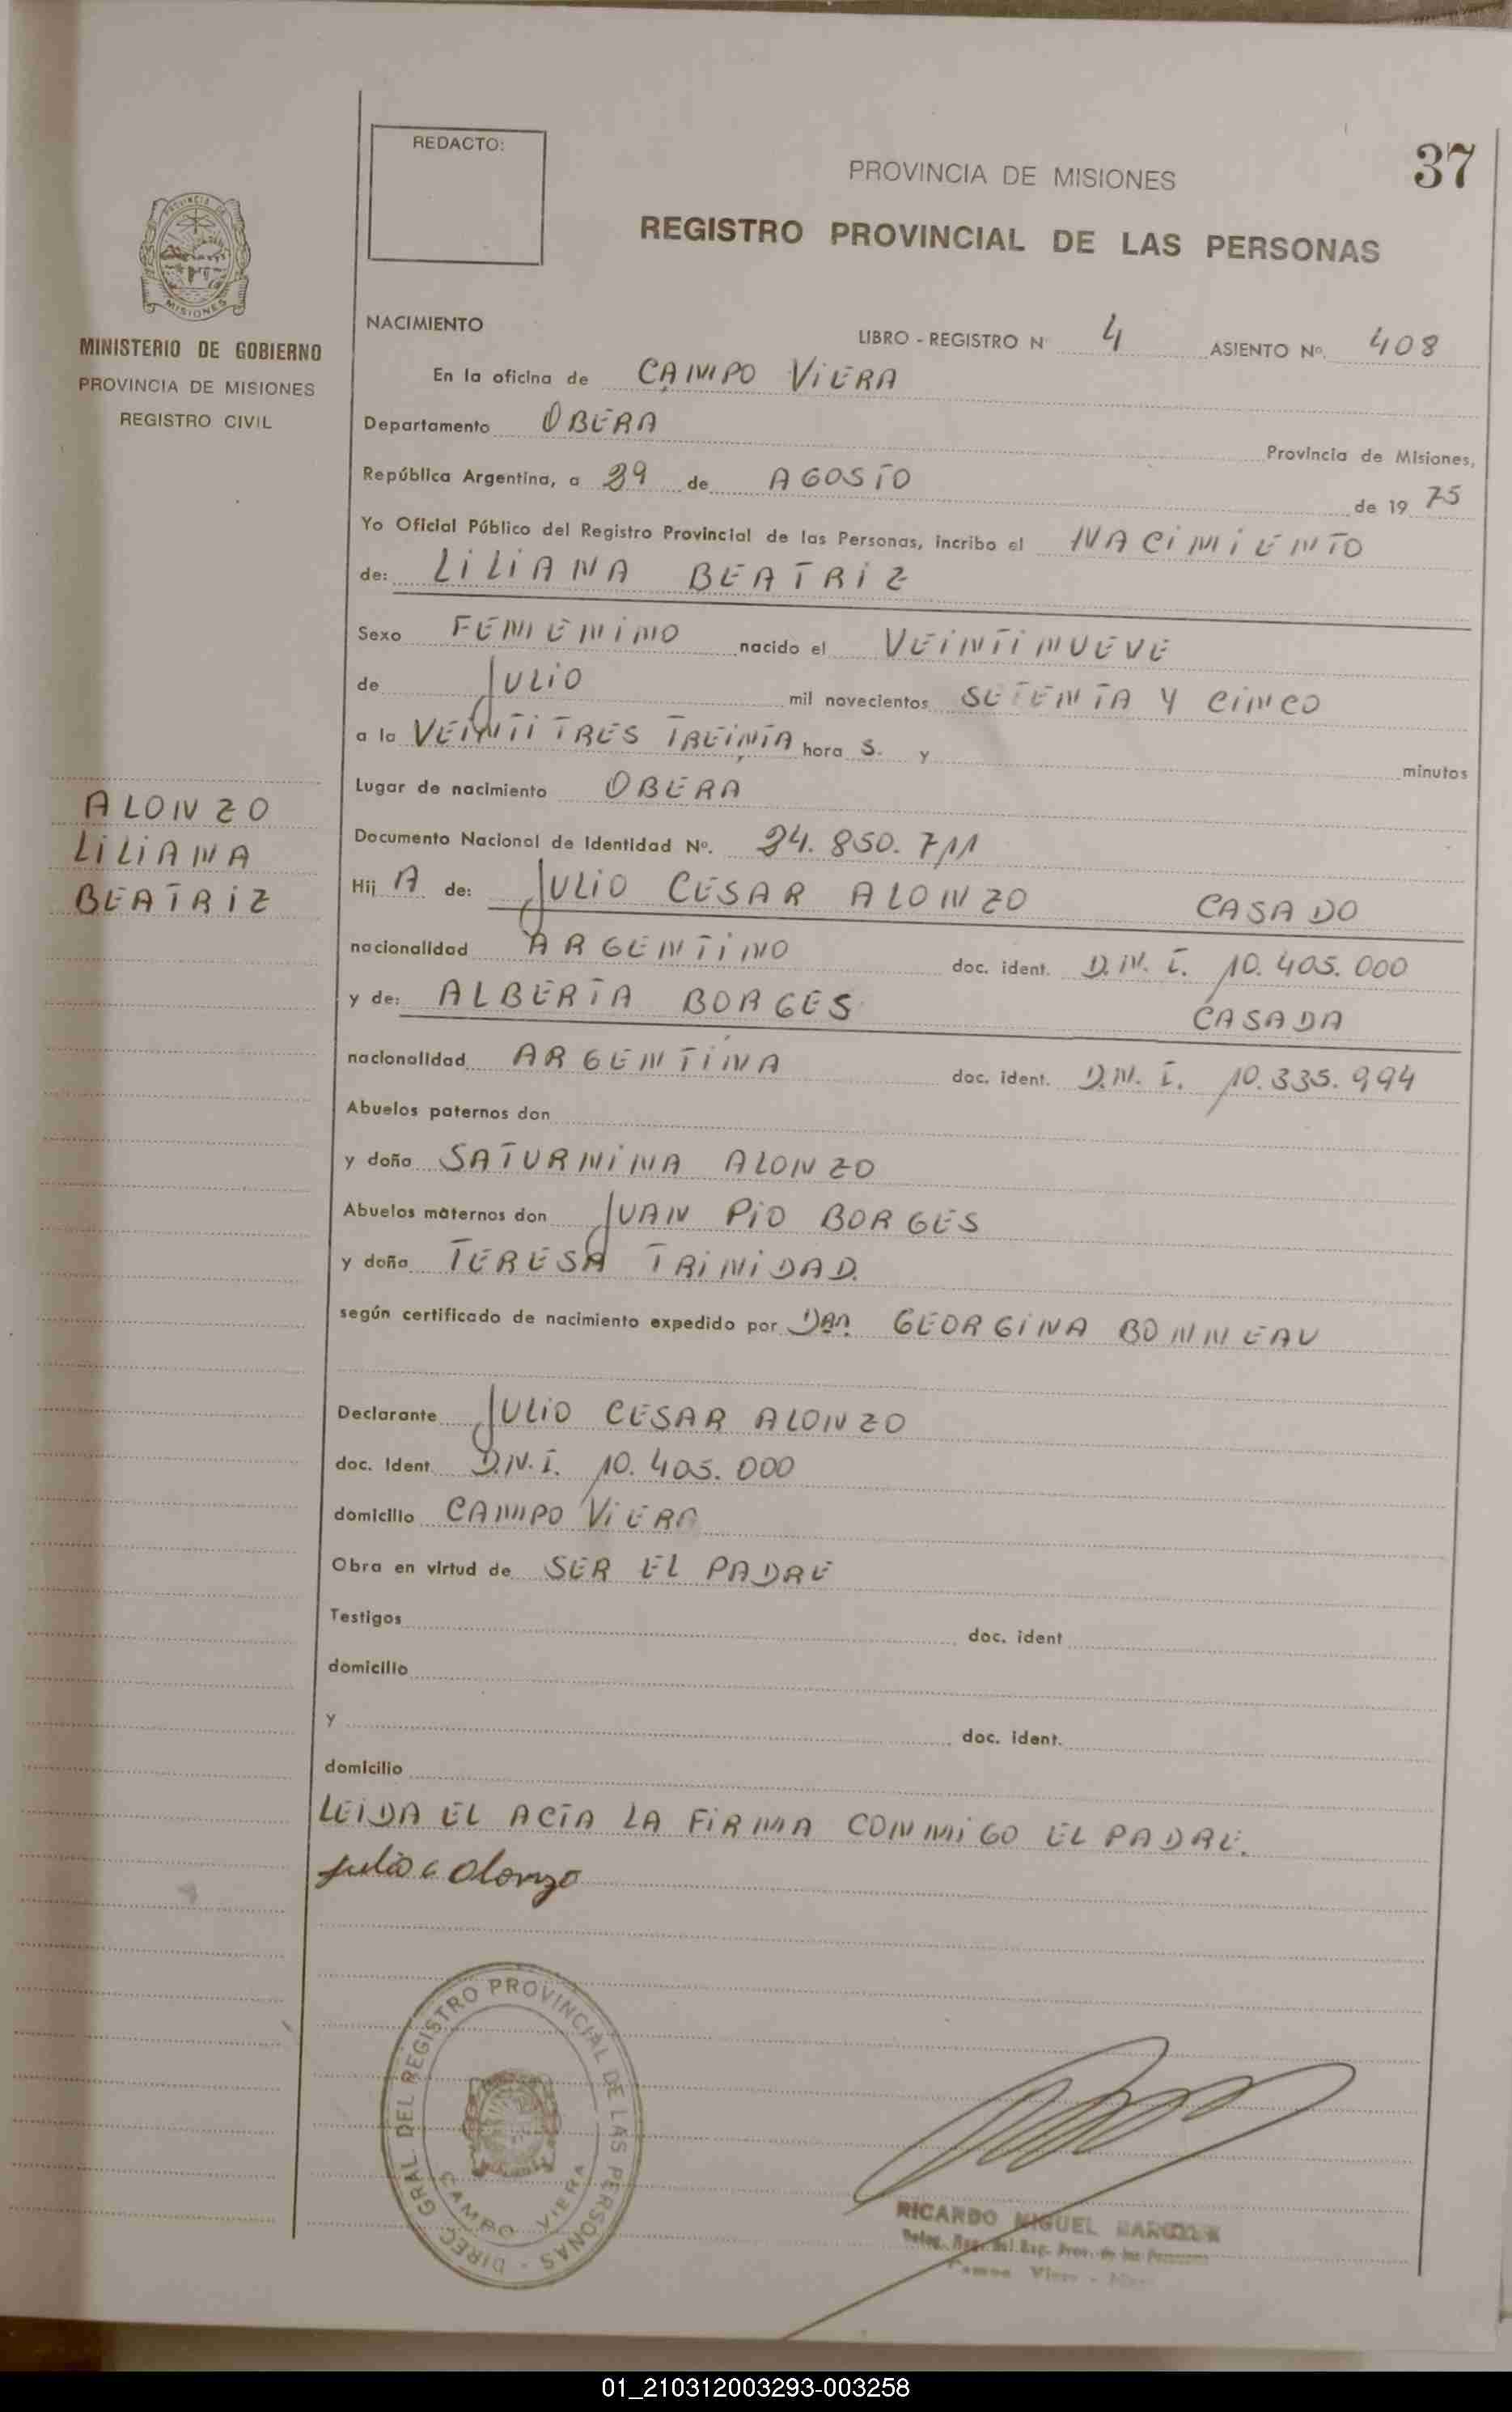 37
REDACTO:
PROVINCIA DE MISIONES
REGISTRO PROVINCIAL DE LAS PERSONAS
MISIONES
MINISTERIO DE GOBIERNO
PROVINCIA DE MISIONES
REGISTRO CIVIL
NACIMIENTO LIBRO - REGISTRO N 4 ASIENTO Nº. 408
En la oficina de CAMPO VIERA
Departamento OBERA Provincia de Misiones,
República Argentina, a 29 de AGOSTO de 19 75
Yo Oficial Público del Registro Provincial de las Personas, incribo el NACIMIENTO
de: LILIANA BEATRIZ
Sexo FEMENINO nacido el VEINTINUEVE
de JULIO mil novecientos SETENTA Y CINCO
a la VEINTITRES TREINTA hora S. y minutos
Lugar de nacimiento OBERA
ALONZO
LILIANA
BEATRIZ
Documento Nacional de Identidad Nº. 24.850.711
Hij A de: JULIO CESAR ALONZO CASADO
nacionalidad ARGENTINO doc. ident. D.N.I. 10.405.000
y de: ALBERTA BORGES CASADA
nacionalidad ARGENTINA doc. ident. D.N.I. 10.335.994
Abuelos paternos don
y doña SATURNINA ALONZO
Abuelos maternos don JUAN PIO BORGES
y doña TERESA TRINIDAD.
según certificado de nacimiento expedido por DRA. GEORGINA BONNEAU
Declarante JULIO CESAR ALONZO
doc. Ident. D.N.I. 10.405.000
domicilio CAMPO VIERA
Obra en virtud de SER EL PADRE
Testigos doc. ident
domicilio
y doc. ident.
domicilio
LEIDA EL ACTA LA FIRMA CONMIGO EL PADRE.
Julio C Alonzo
DIREC. GRAL DEL REGISTRO PROVINCIAL DE LAS PERSONAS -
CAMPO VIERA
RICARDO MIGUEL
01_210312003293-003258